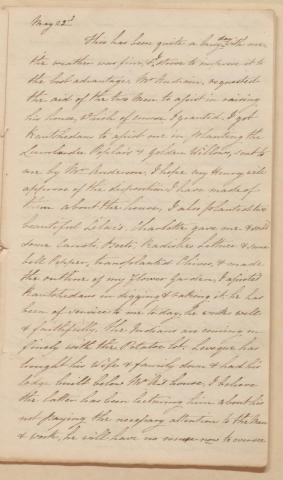 May 22d
This has been quite a busy day with me,
the weather was fine, & I strove to improve it to
the best advantage. Mr Andrain requested
the aid of the two Men to assist in raising
his house, which of course I granted. I got
to assist me in planting the
Lombardy Poplars & Golden Willows, sent to
me by Mrs Anderson, I hope my Henry will
approve of the disposition I have made of
them about the house, I also planted two
beautiful Lilacs. Charlotte gave me & sow'd
some Carrots, Beets, Radishes Lettuce & some
bell Pepper, transplanted Chives, & made
the outline of my flower Garden, I assisted
in digging & raking it. he has
been of service to me today, he works well
& faithfully. The Indians are coming on
finely with the Potatoe lot. Levaque has
brought his Wife & family down & had his
lodge built below Mr house, I believe
the latter has been lecturing him about his
not paying the necessary attention to the Men
& work, he will have no excuse now to oversee